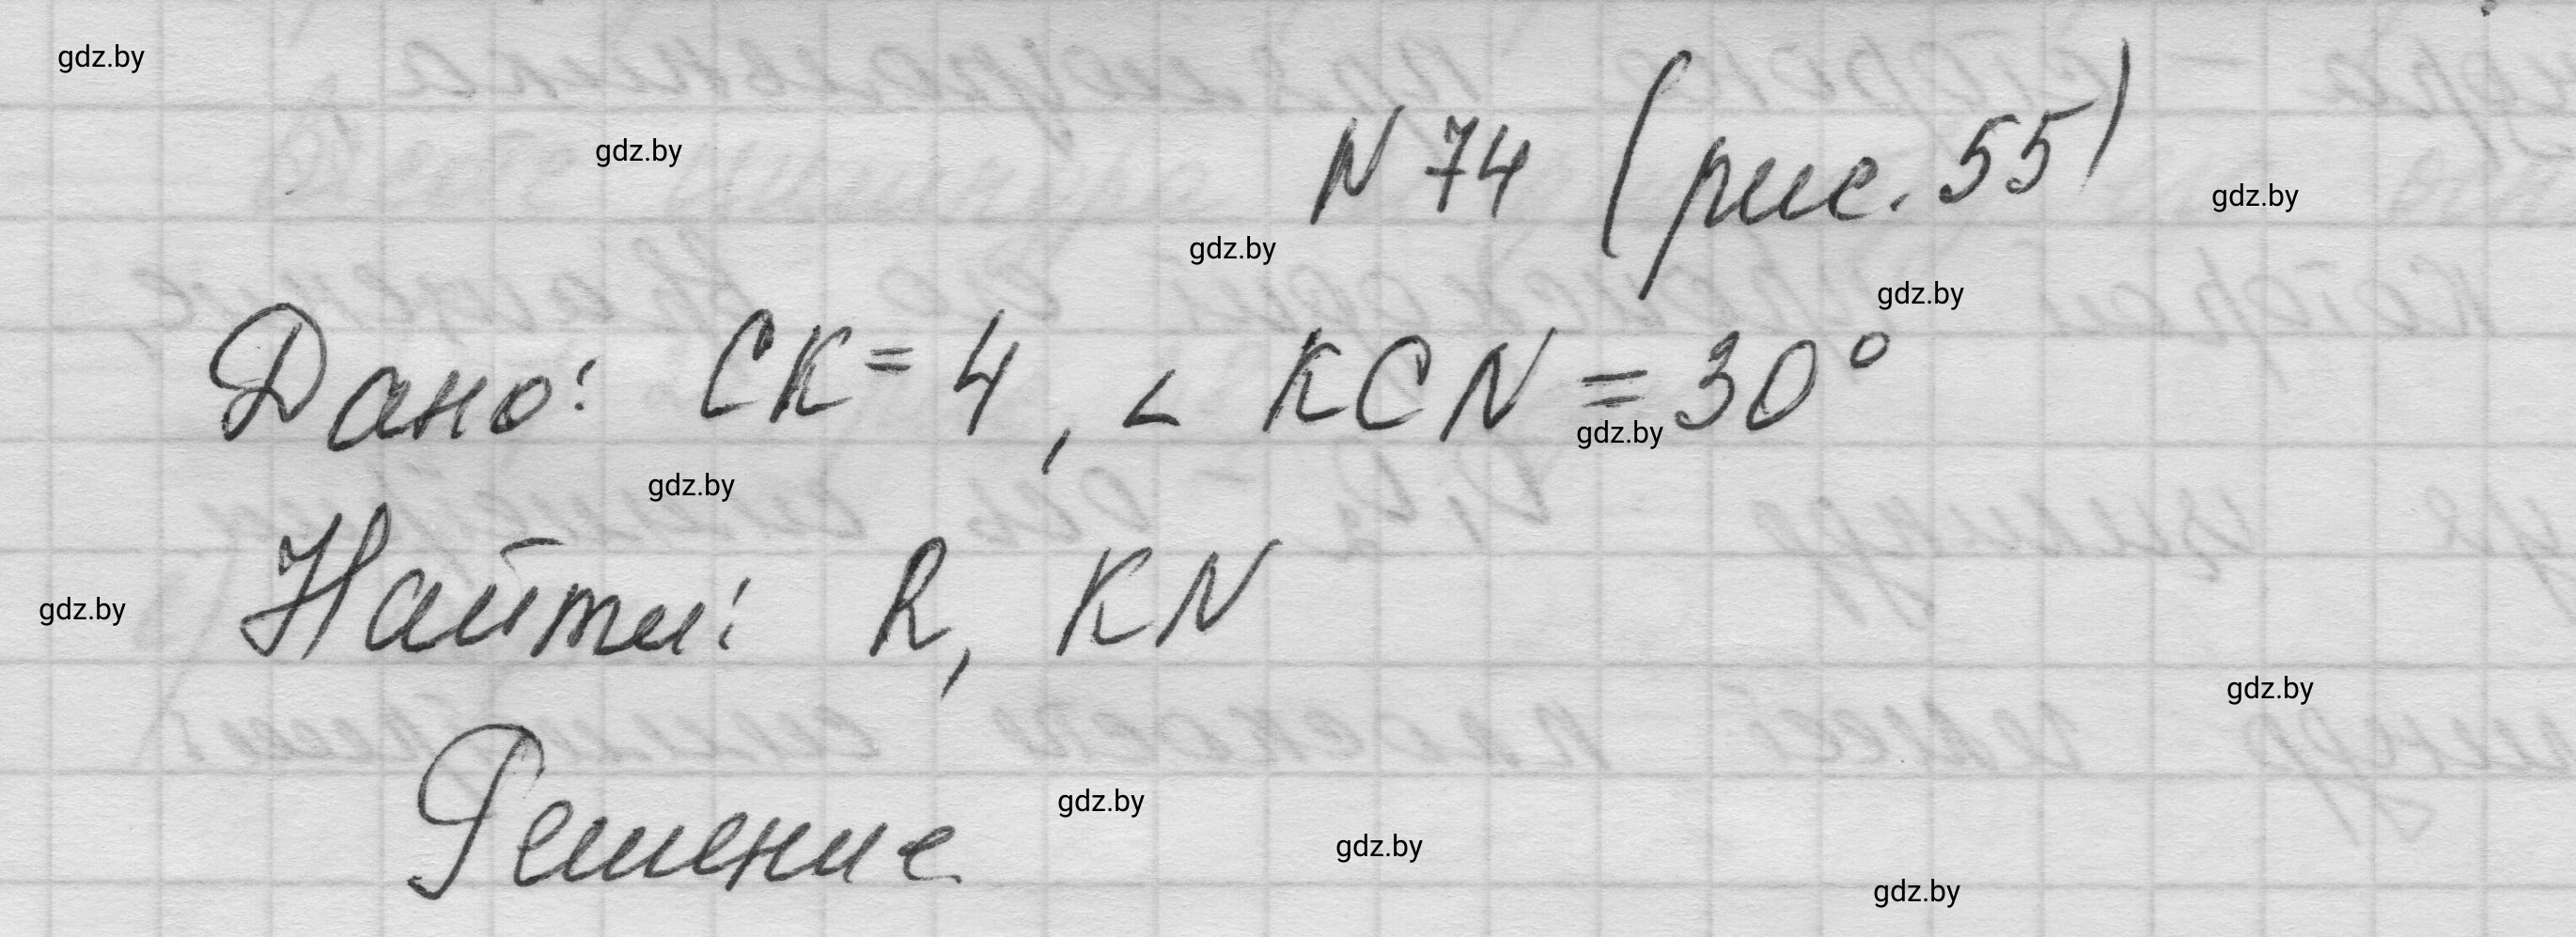 gdz.by
gdz.by
N 74 (рис. 55)
gdz.by
gdz.by
gdz.by
Дано: CK = 4, ∠ KCN = 30°
gdz.by
gdz.by
Найти: R, KN
gdz.by
gdz.by
Решение
gdz.by
gdz.by
gdz.by